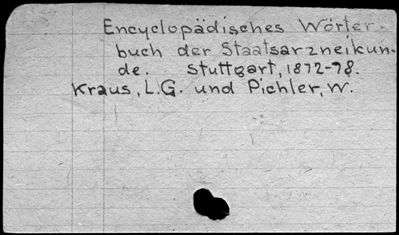 Encyclopädisches Wörter-
buch der Staatsarzneikun-
de. Stuttgart, 1872-78.
Kraus, L.G. und Pichler, W.